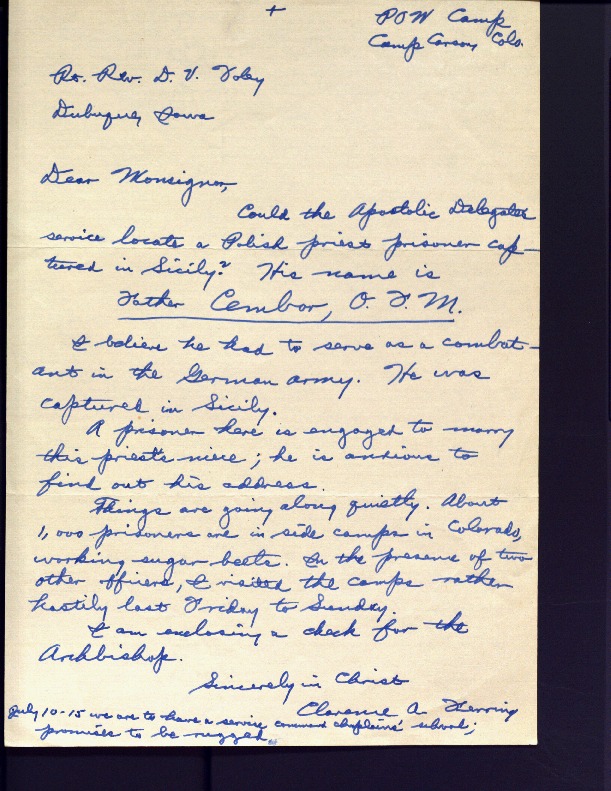 +
POW Camp
Camp Carson, Colo.
Rt. Rev. D. V. Foley
Dubuque, Iowa
Dear Monsignor,
Could the Apostolic Delegate
service locate a Polish priest prisoner cap-
tured in Sicily? His name is
Father Cembor, O. F. M.
I believe he had to serve as a combat-
ant in the German army. He was
captured in Sicily.
A prisoner here is engaged to marry
this priest's niece; he is anxious to
find out his address.
Things are going along quietly. About
1,000 prisoners are in side camps in Colorado,
working sugar beets. In the presence of two
other officers, I visited the camps rather
hastily last Friday to Sunday.
I am enclosing a check for the
Archbishop.
Sincerely in Christ
Clarence A. Herring
July 10-15 we are to have a service command chaplains' school;
promises to be rugged.